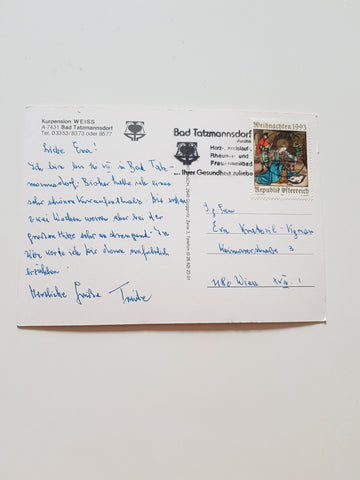 Kurpension WEISS
A-7431 Bad Tatzmannsdorf
Tel. 03353/8373 oder 8577
Liebe Eva!
Ich bin bis in Bad Tatz-
mannsdorf. Bisher hatte ich einen
sehr schönen Kuraufenthalt. Die ersten
zwei Wochen waren aber bei der
großen Hitze sehr anstrengend. In
Wien werde ich Dir davon ausführlich
erzählen.
Herzliche Grüße Trude
Bad Tatzmannsdorf
Austria
Herz-, Kreislauf-
Rheuma- und
Frauenheilbad
... Ihrer Gesundheit zuliebe
Weihnachten 1993
Republik Österreich
Eva
3
1180 Wien